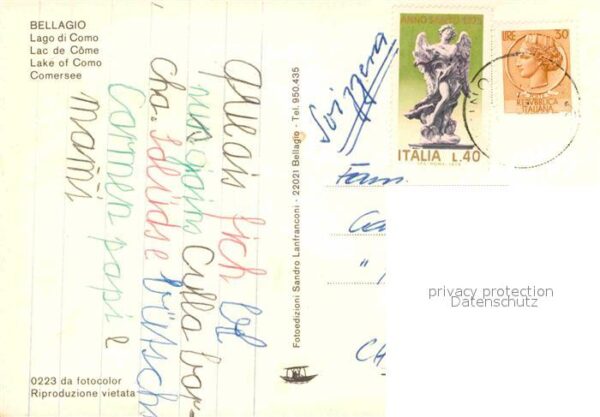 BELLAGIO
Lago di Como
Lac de Côme
Lake of Como
Comersee
quais fich bel
nus
culla bar-
cha. Solids e bütschs
Carmen papi e
mami
0223 da fotocolor
Riproduzione vietata
Fotoedizioni Sandro Lanfranconi - 22021 Bellagio - Tel. 950.435
Svizzera
ANNO SANTO 1975
ITALIA L.40
LIRE 30
REPVBBLICA
ITALIANA
Fam.
privacy protection
Datenschutz